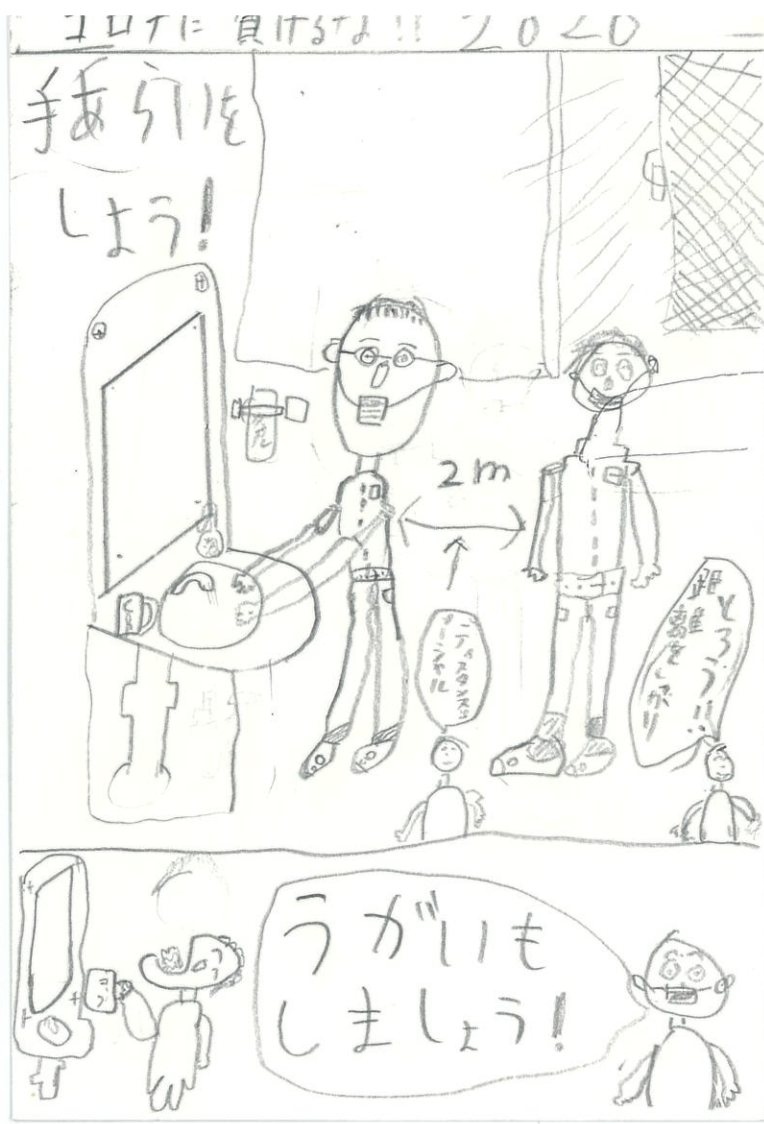 コロナに負けるな!! 2020
手あらいを
しよう!
2m
ソーシャル
ディスタンス
距離をしっかり
とろう!!
うがいも
しましょう!